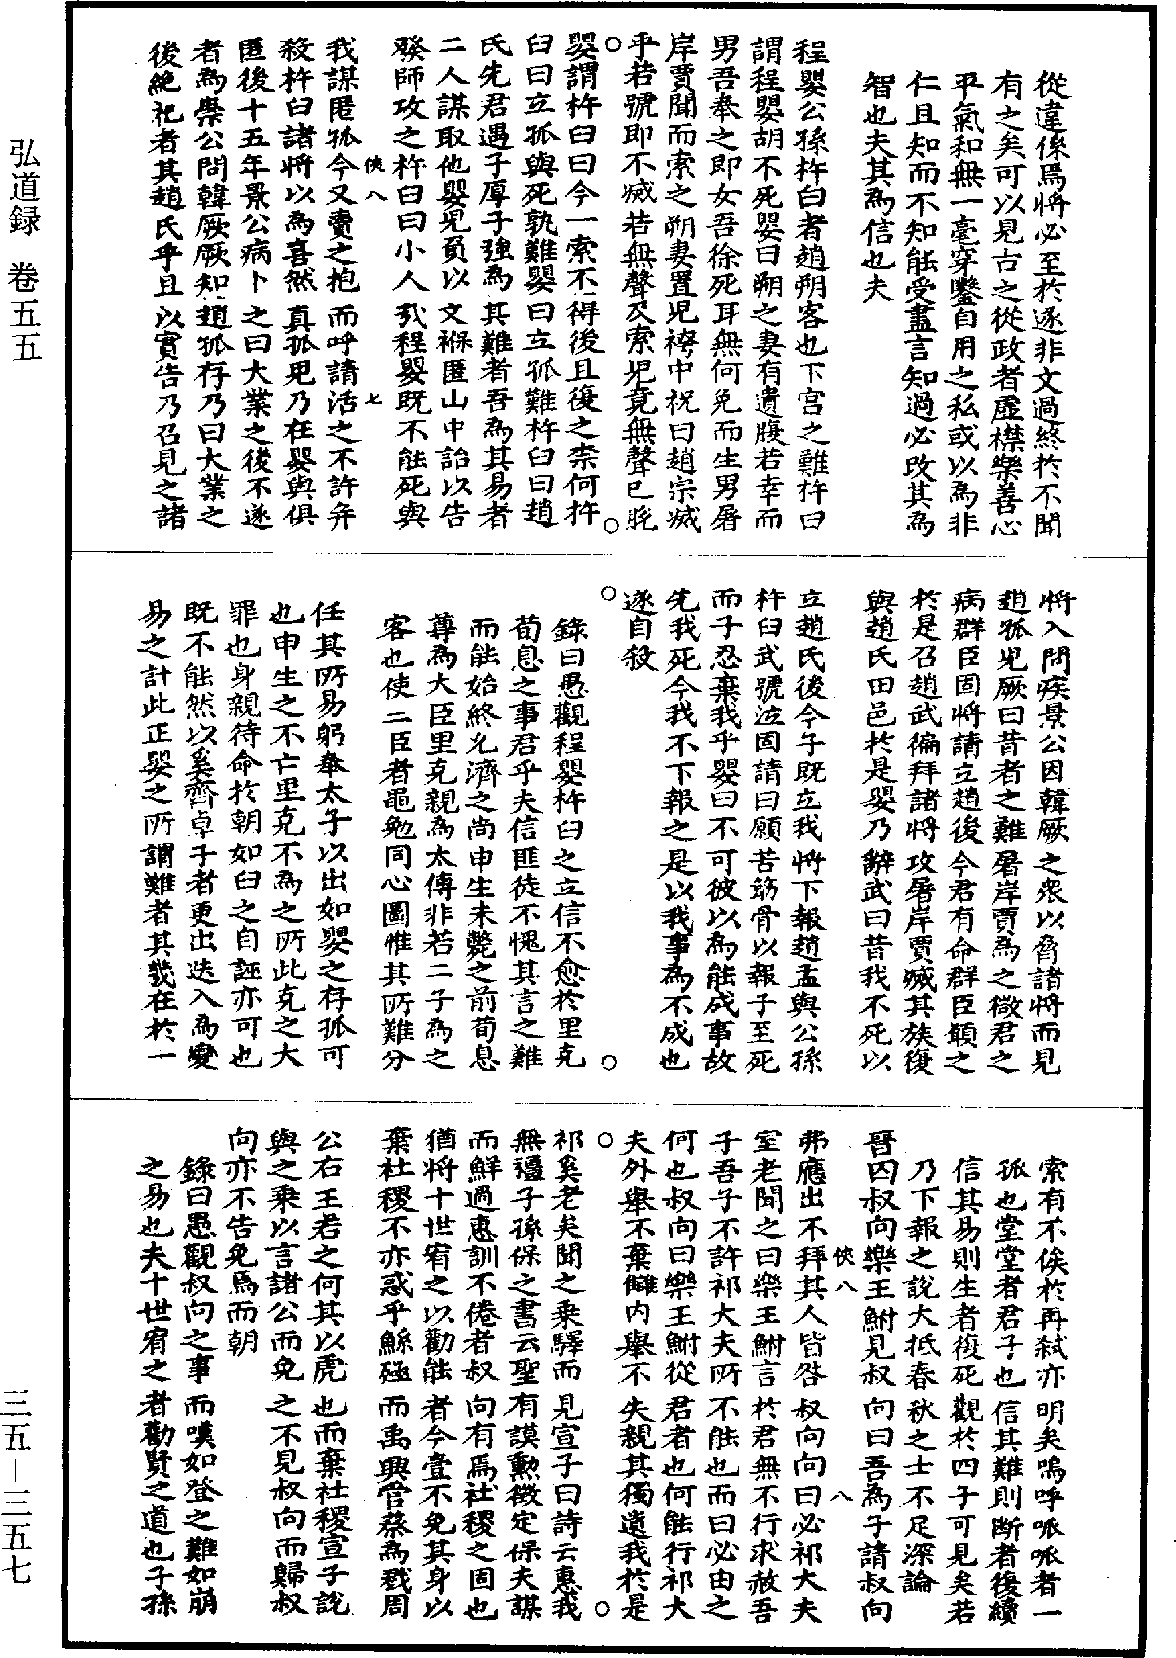 弘道録　卷五五
三五―三五七
從違係焉將必至於遂非文過終於不聞
有之矣可以見古之從政者虛襟樂善心
平氣和無一毫穿鑿自用之私或以為非
仁且知而不知能受盡言知過必改其為
智也夫其為信也夫
程嬰公孫杵臼者趙朔客也下宮之難杵曰
謂程嬰胡不死嬰曰朔之妻有遺腹若幸而
男吾奉之即女吾徐死耳無何免而生男屠
岸賈聞而索之朔妻置兒袴中祝曰趙宗滅
乎若號即不滅若無聲及索兒竟無聲已脫
○
○
嬰謂杵臼曰今一索不得後且復之柰何杵
臼曰立孤與死孰難嬰曰立孤難杵臼曰趙
氏先君遇子厚子強為其難者吾為其易者
二人謀取他嬰兒負以文褓匿山中詒以告
發師攻之杵臼曰小人哉程嬰既不能死與
俠八
七
我謀匿孤今又賣之抱而呼請活之不許并
殺杵臼諸將以為喜然真孤兒乃在嬰與俱
匿後十五年景公病卜之曰大業之後不遂
者為祟公問韓厥厥知趙孤存乃曰大業之
後絶祀者其趙氏乎且以實告乃召見之諸
將入問疾景公因韓厥之衆以脅諸將而見
趙孤兒厥曰昔者之難屠岸賈為之微君之
病群臣固將請立趙後今君有命群臣願之
於是召趙武徧拜諸將攻屠岸賈滅其族復
與趙氏田邑於是嬰乃辭武曰昔我不死以
立趙氏後今子既立我將下報趙孟與公孫
杵臼武號泣固請曰願苦筋骨以報子至死
而子忍棄我乎嬰曰不可彼以為能成事故
先我死今我不下報之是以我事為不成也
遂自殺
○
○
錄曰愚觀程嬰杵臼之立信不愈於里克
荀息之事君乎夫信匪徒不愧其言之難
而能始終允濟之尚申生未斃之前荀息
尊為大臣里克親為太傅非若二子為之
客也使二臣者黽勉同心圖惟其所難分
任其所易躬奉太子以出如嬰之存孤可
也申生之不亡里克不為之所此克之大
罪也身親待命於朝如臼之自誣亦可也
既不能然以奚齊卓子者更出迭入為變
易之計此正嬰之所謂難者其幾在於一
索有不俟於再弒亦明矣嗚呼哌哌者一
孤也堂堂者君子也信其難則斷者後續
信其易則生者復死觀於四子可見矣若
乃下報之說大抵春秋之士不足深論
晉囚叔向樂王鮒見叔向曰吾為子請叔向
俠八
八
弗應出不拜其人皆咎叔向向曰必祁大夫
室老聞之曰樂王鮒言於君無不行求赦吾
子吾子不許祁大夫所不能也而曰必由之
何也叔向曰樂王鮒從君者也何能行祁大
夫外舉不棄讎內舉不失親其獨遺我於是
○
○
祁奚老矣聞之乘驛而見宣子曰詩云惠我
無疆子孫保之書云聖有謨勳徵定保夫謀
而鮮過惠訓不倦者叔向有焉社稷之固也
猶將十世宥之以勸能者今壹不免其身以
棄社稷不亦惑乎鯀殛而禹興管蔡為戮周
公右王若之何其以虎也而棄社稷宣子說
與之乘以言諸公而免之不見叔向而歸叔
向亦不告免焉而朝
錄曰愚觀叔向之事而嘆如登之難如崩
之易也夫十世宥之者勸賢之道也子孫